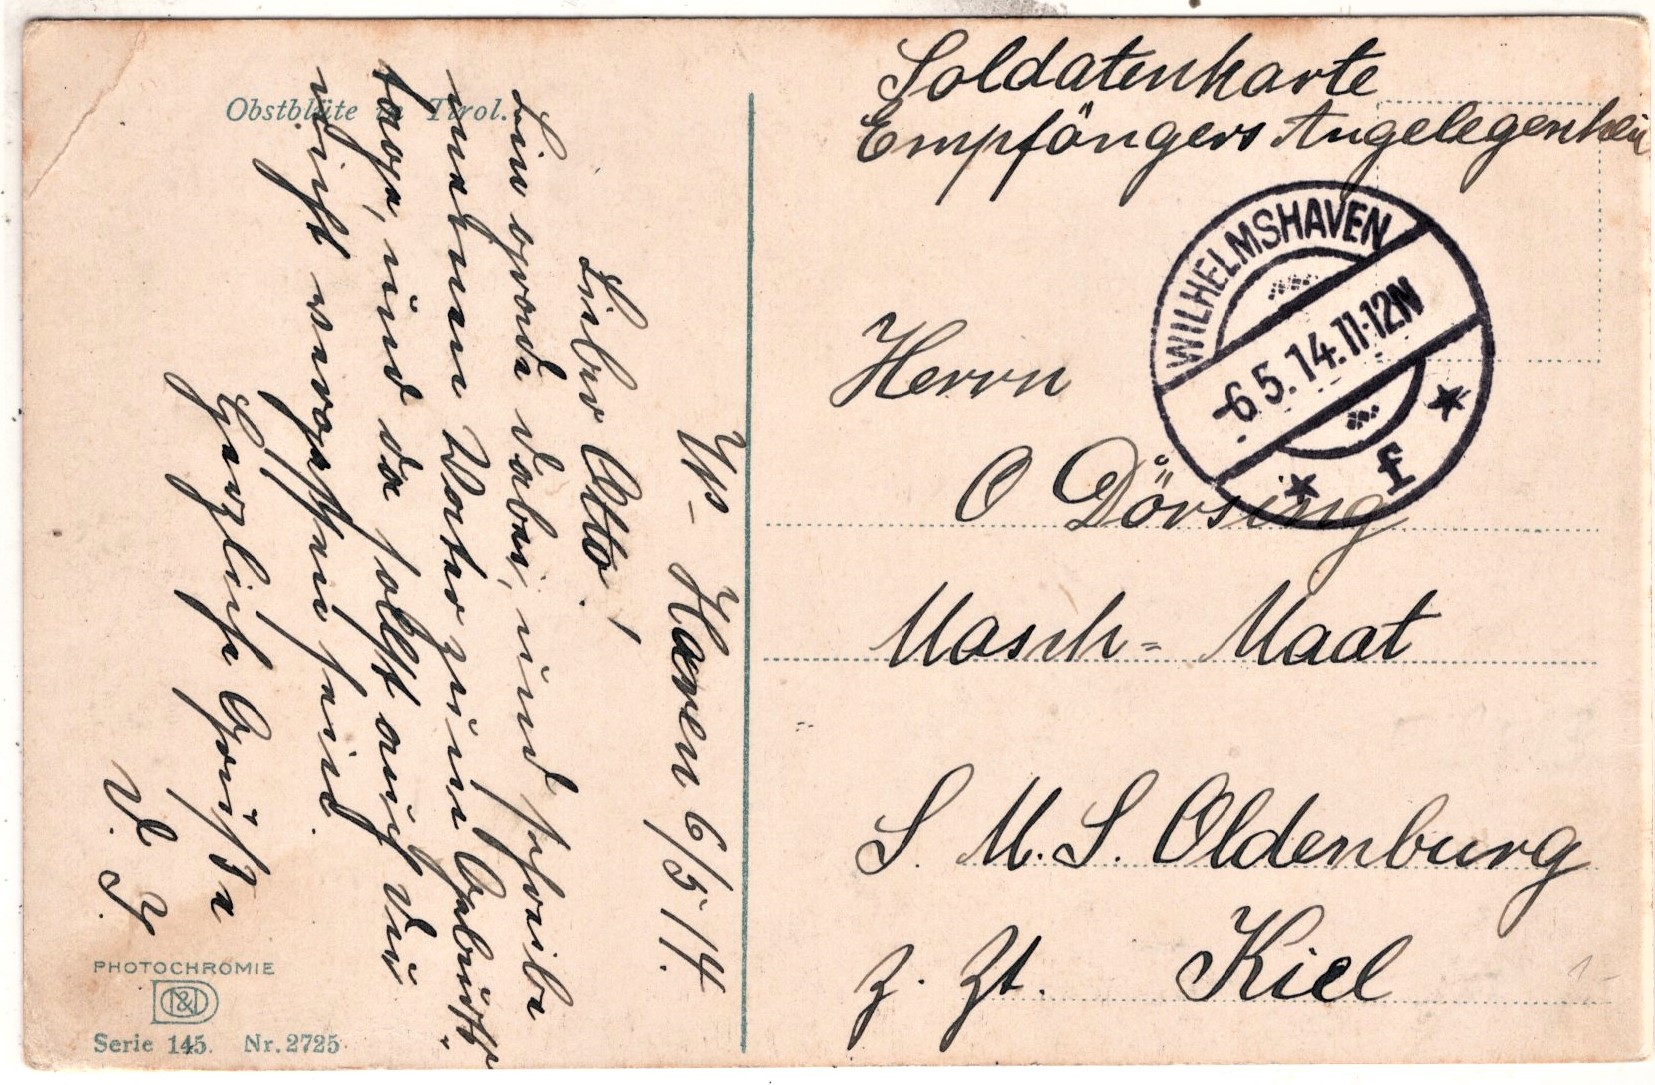 Obstblüte in Tirol.
W- Haven 6/5 14.
Lieber Otto!
Bin grade dabei, und schreibe
meinem Vater zum Geburts-
tage, und da sollst auch du
nicht vergessen sein.
Herzliche Grüße
PHOTOCHROMIE
Serie 145. Nr. 2725
Soldatenkarte
Empfängers Angelegenheit
WILHELMSHAVEN
-6.5.14.11-12N
* f *
Herrn
O Dörsing
Masch= Maat
S. M. S. Oldenburg
z. Zt. Kiel